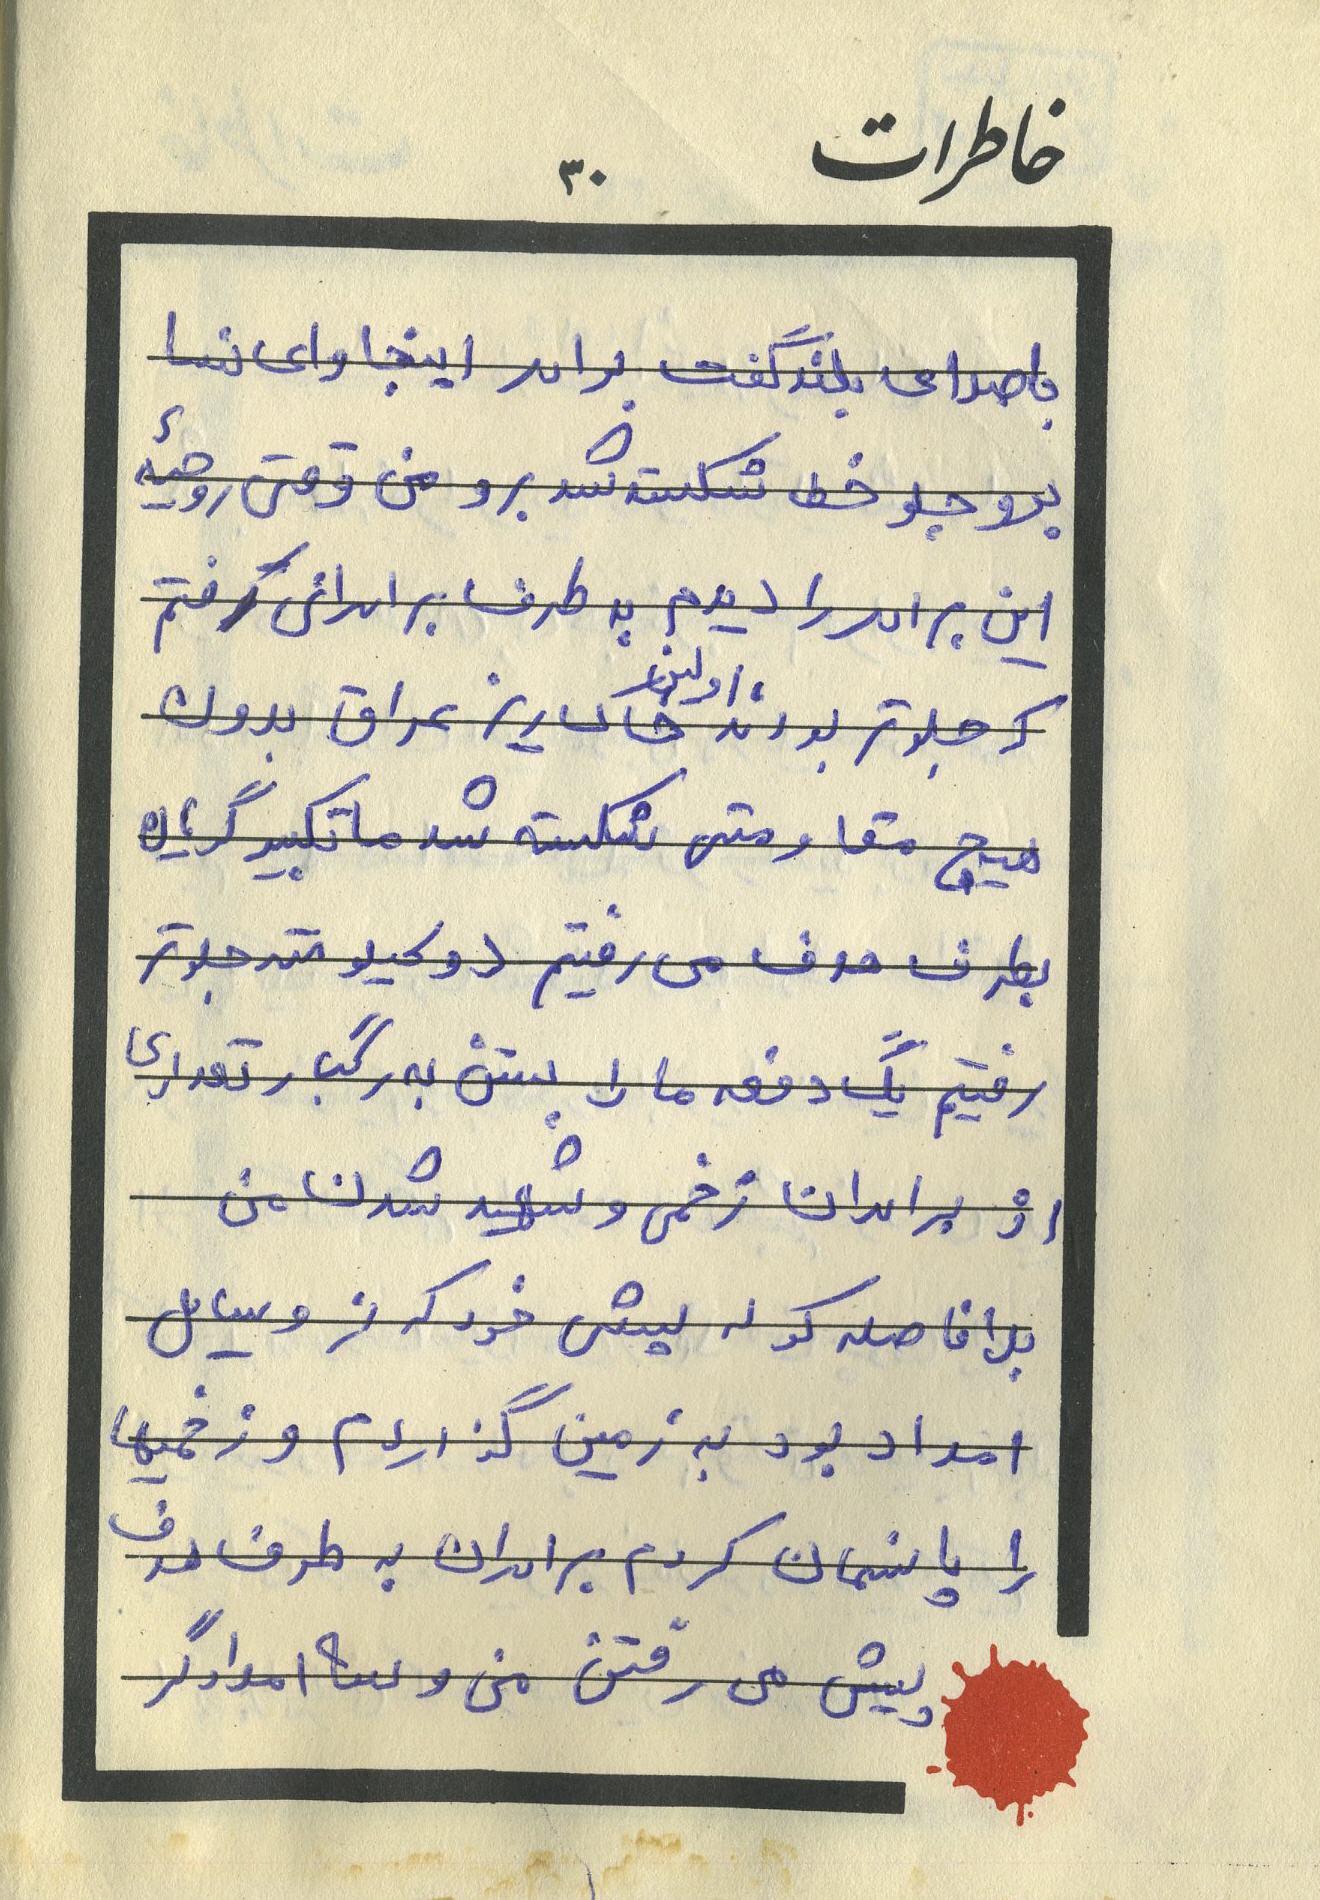 خاطرات
۳۰
باصدای بلند گفت برادر اینجا وای نسا
برو جلو خط شکسته شد برو من وقتی روحیهٔ
این برادر را دیدم به طرف برادرانی رفتم
که جلوتر بودند، اولین خاک ریز عراق بدون
هیچ مقاومتی شکسته شد ما تکبیر گویان
بطرف هدف می رفتیم دو کیلو متر جلوتر
رفتیم یک دفعه ما را بستن به رگبار تعدادی
از برادران زخمی و شهید شدن من
بلافاصله کوله پیشی خود که از وسایل
امداد بود به زمین گذاردم و زخمیها
را پانسمان کردم برادران به طرف هدف
پیش می رفتن من و امدادگر